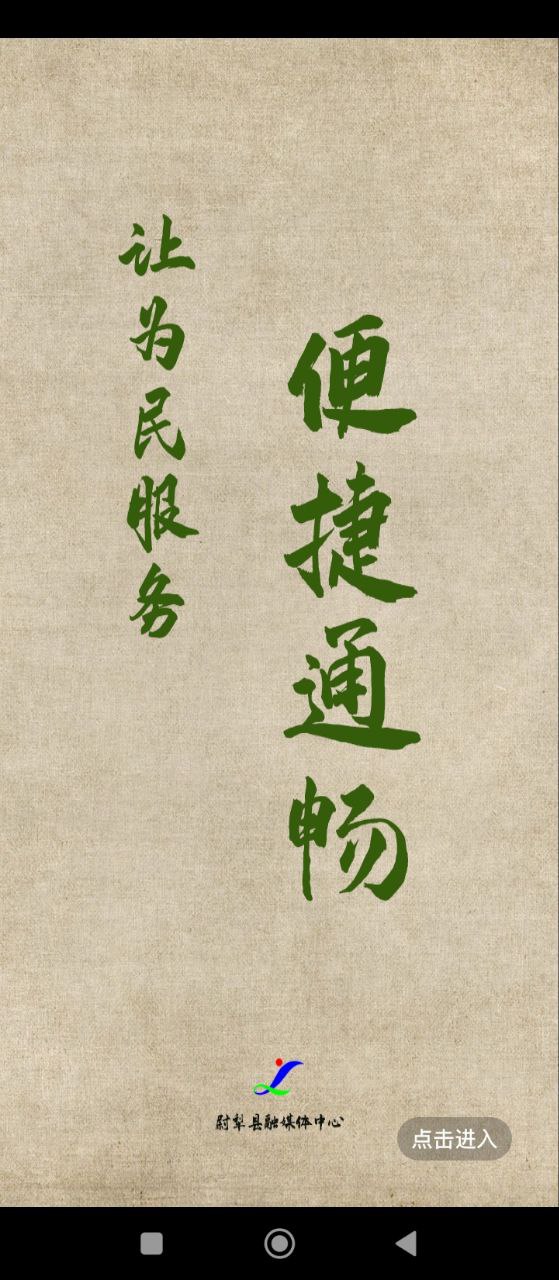 让为民服务
便捷通畅
尉犁县融媒体中心
点击进入